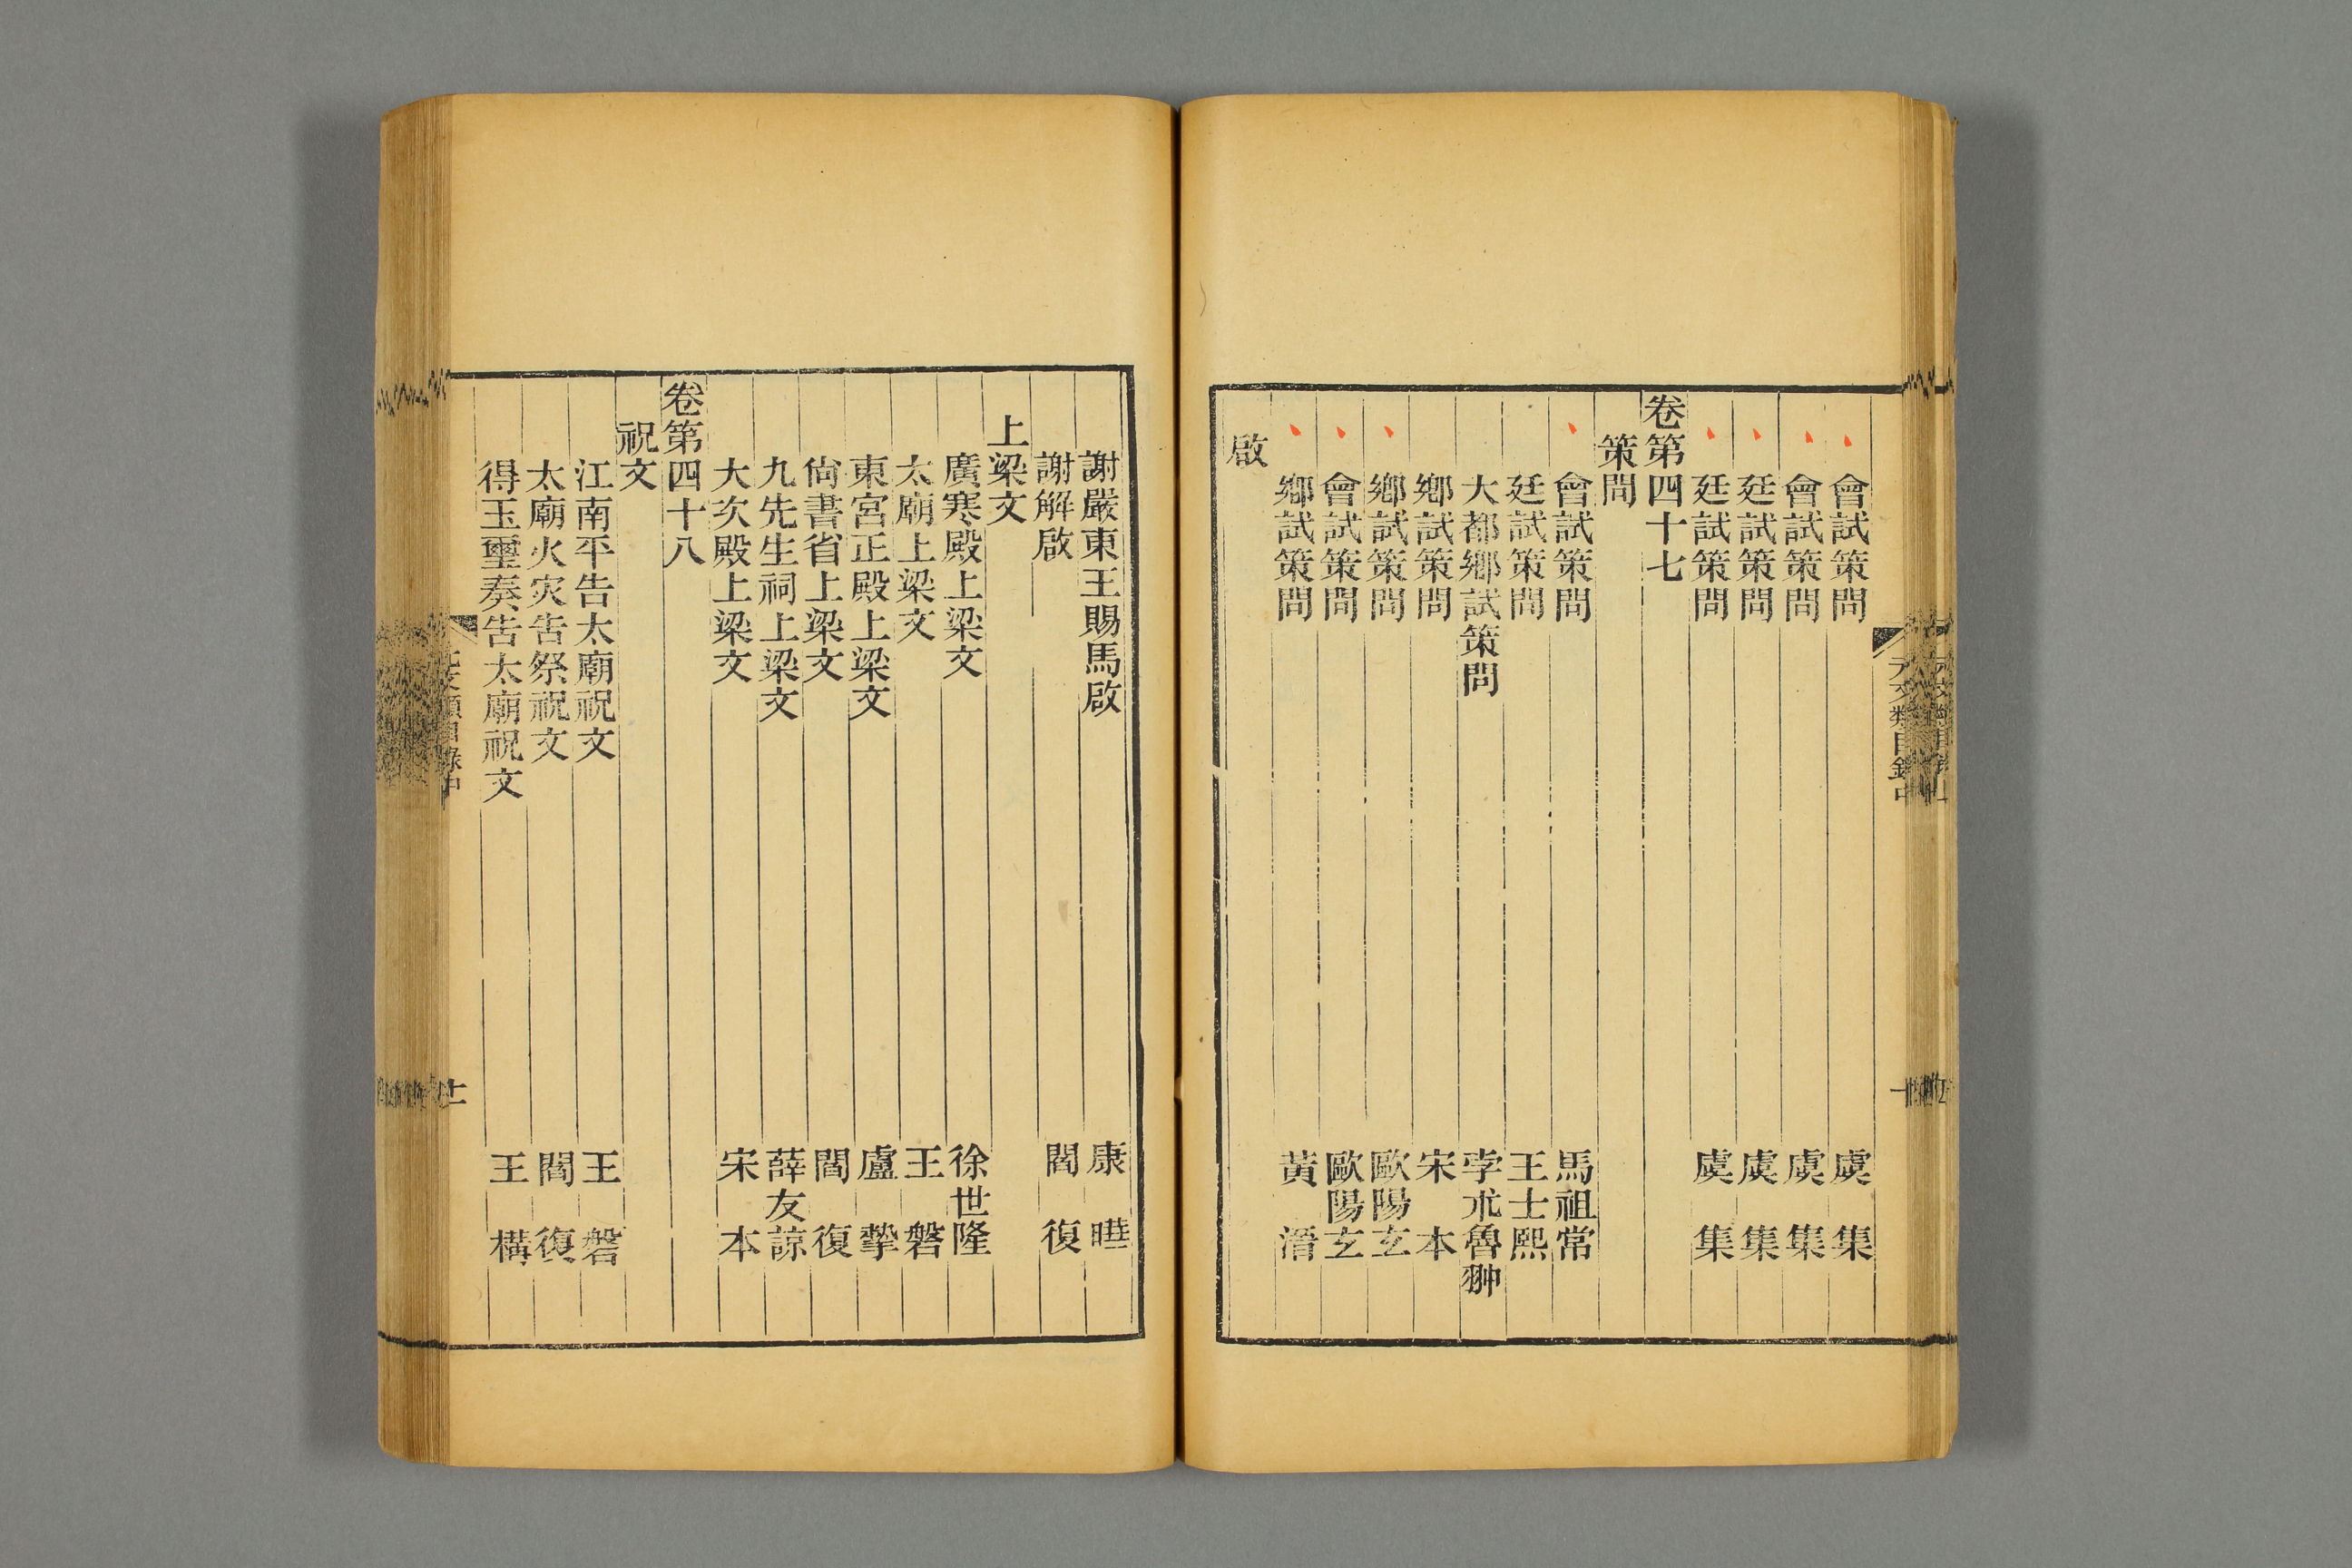 會試策問 虞集
會試策問 虞集
廷試策問 虞集
廷試策問 虞集
卷第四十七
策問
會試策問 馬祖常
廷試策問 王士熙
大都鄉試策問 孛朮魯翀
鄉試策問 宋本
鄉試策問 歐陽玄
會試策問 歐陽玄
鄉試策問 黃溍
啟
謝嚴東王賜馬啟 康曄
謝解啟 閻復
上梁文
廣寒殿上梁文 徐世隆
太廟上梁文 王磐
東宮正殿上梁文 盧摯
尙書省上梁文 閻復
九先生祠上梁文 薛友諒
大次殿上梁文 宋本
卷第四十八
祝文
江南平告太廟祝文 王磐
太廟火灾告祭祝文 閻復
得玉璽奏告太廟祝文 王構